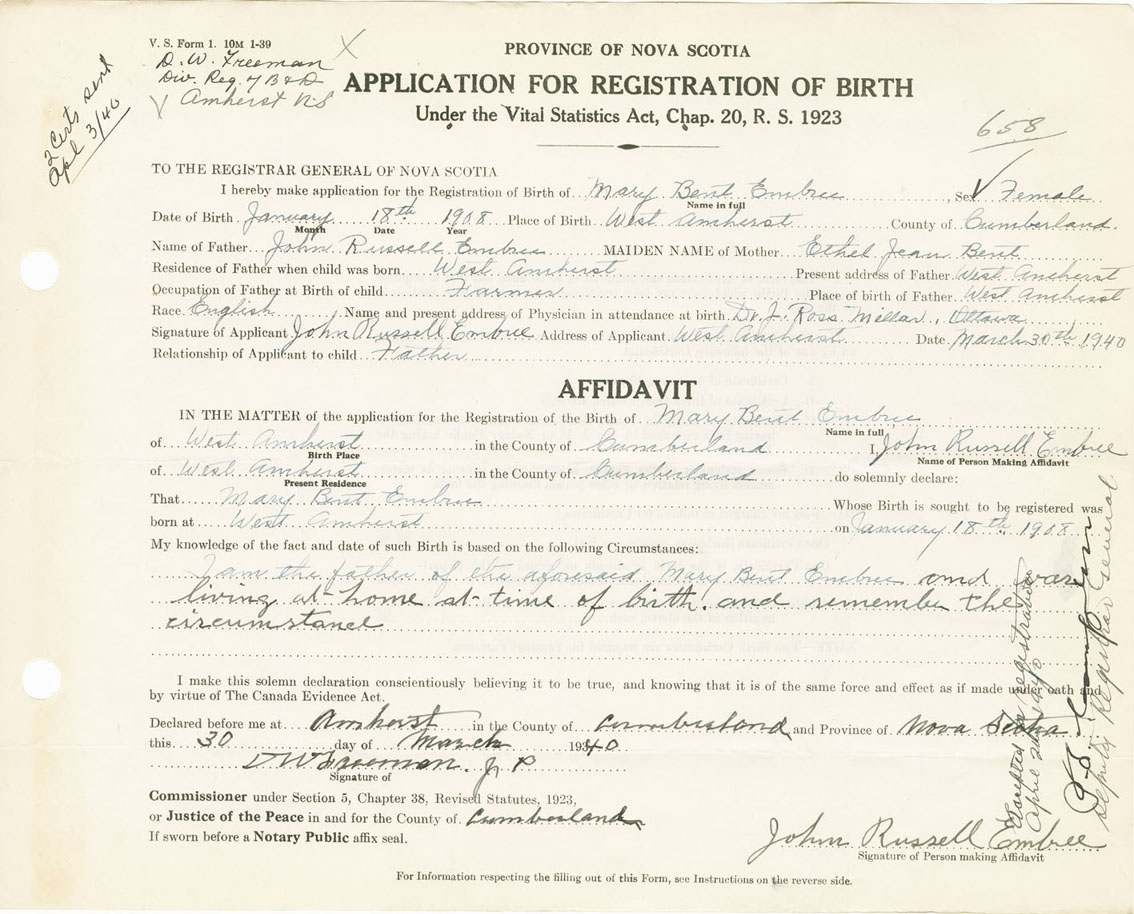 V. S. Form 1. 10M 1-39
D. W. Freeman
Div. Reg. of B & D
Amherst N S
2 certs sent
Apl 3/40
PROVINCE OF NOVA SCOTIA
APPLICATION FOR REGISTRATION OF BIRTH
Under the Vital Statistics Act, Chap. 20, R. S. 1923
658
TO THE REGISTRAR GENERAL OF NOVA SCOTIA
I hereby make application for the Registration of Birth of Mary Bent Embree, Sex Female
Name in full
Date of Birth January 18th 1908 Place of Birth West Amherst County of Cumberland.
Month Date Year
Name of Father John Russell Embree MAIDEN NAME of Mother Ethel Jean Bent
Residence of Father when child was born West Amherst Present address of Father West Amherst
Occupation of Father at Birth of child Farmer Place of birth of Father West Amherst
Race English Name and present address of Physician in attendance at birth Dr. J. Ross Millar, Ottawa
Signature of Applicant John Russell Embree Address of Applicant West Amherst Date March 30th 1940
Relationship of Applicant to child Father
AFFIDAVIT
IN THE MATTER of the application for the Registration of the Birth of Mary Bent Embree
Name in full
of West Amherst in the County of Cumberland I, John Russell Embree
Birth Place Name of Person Making Affidavit
of West Amherst in the County of Cumberland do solemnly declare:
Present Residence
That Mary Bent Embree Whose Birth is sought to be registered was
born at West Amherst on January 18th 1908
My knowledge of the fact and date of such Birth is based on the following Circumstances:
I am the father of the aforesaid Mary Bent Embree and was
living at home at time of birth and remember the
circumstance
I make this solemn declaration conscientiously believing it to be true, and knowing that it is of the same force and effect as if made under oath and
by virtue of The Canada Evidence Act.
Declared before me at Amherst in the County of Cumberland and Province of Nova Scotia
this 30 day of March 1940
D W Freeman. J P
Signature of
Commissioner under Section 5, Chapter 38, Revised Statutes, 1923,
or Justice of the Peace in and for the County of Cumberland
If sworn before a Notary Public affix seal.
John Russell Embree
Signature of Person making Affidavit
For Information respecting the filling out of this Form, see Instructions on the reverse side.
Accepted for registration
April 2nd 1940
Deputy Registrar General